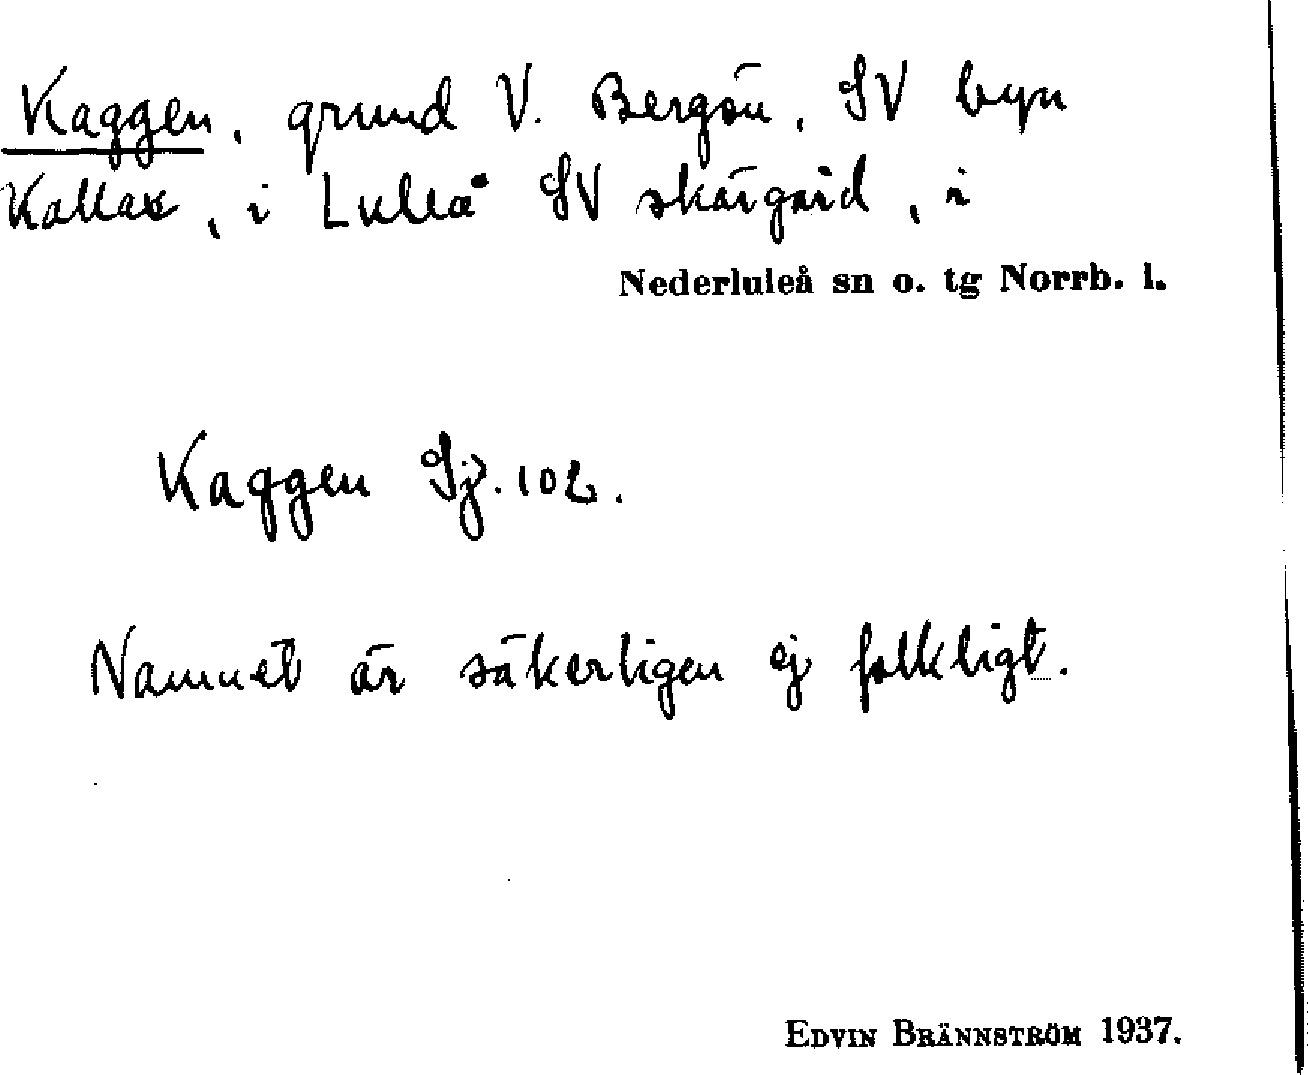 Kaggen, grund V. Bergön, SV byn
Kallax, i Luleå SV skärgård, i
Nederluleå sn o. tg Norrb. l.
Kaggen Sj. 102.
Namnet är säkerligen ej folkligt.
EDVIN BRÄNNSTRÖM 1937.